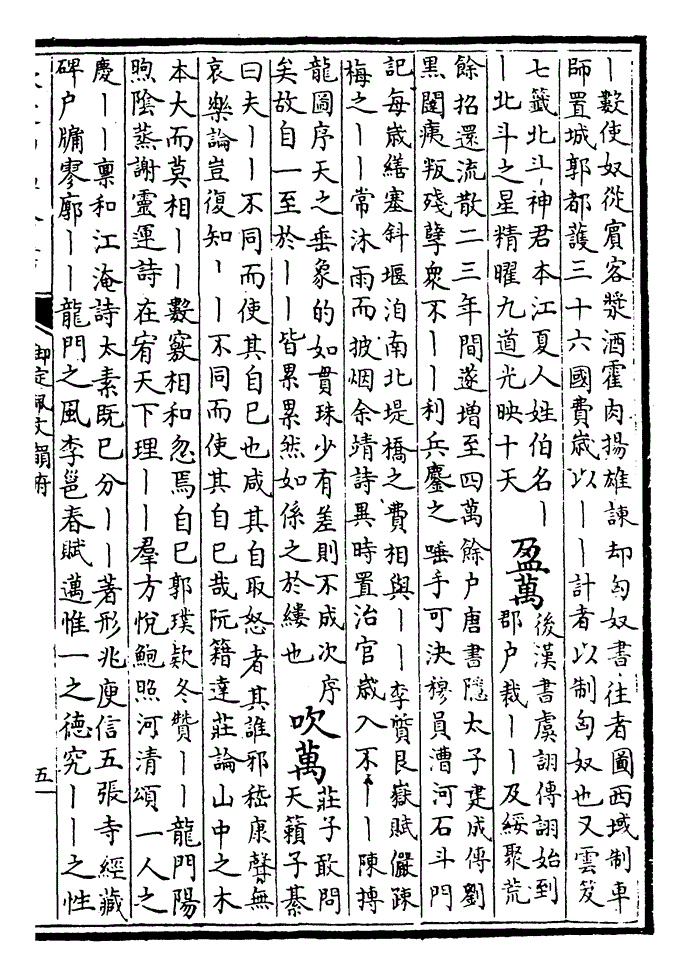 丨數使奴從賓客漿酒霍肉揚雄諫却匈奴書往者圖西域制車
師置城郭都護三十六國費歲以丨丨計者以制匈奴也又雲笈
七籖北斗神君本江夏人姓伯名丨
丨北斗之星精曜九道光映十天
盈萬
後漢書虞詡傳詡始到
郡户裁丨丨及綏聚荒
餘招還流散二三年間遂增至四萬餘户唐書隱太子建成傳劉
黒闥痍叛殘孽衆不丨丨利兵鏖之唾手可決穆員漕河石斗門
記每歲繕塞斜堰洎南北堤橋之費相與丨丨李質艮嶽賦儼踈
梅之丨丨常沐雨而披烟余靖詩異時置治官歲入不丨丨陳摶
龍圖序天之垂象的如貫珠少有差則不成次序
矣故自一至於丨丨皆累累然如係之於縷也
吹萬
莊子敢問
天籟子綦
曰夫丨丨不同而使其自已也咸其自取怒者其誰邪嵇康聲無
哀樂論豈復知丨丨不同而使其自已哉阮籍達莊論山中之木
本大而莫相丨丨數竅相和忽焉自已郭璞欵冬贊丨丨龍門陽
煦陰蒸謝靈運詩在宥天下理丨丨羣方悅鮑照河清頌一人之
慶丨丨稟和江淹詩太素既已分丨丨著形兆庾信五張寺經藏
碑户牖寥廓丨丨龍門之風李邕春賦邁惟一之德究丨丨之性
御定佩文韻府
五